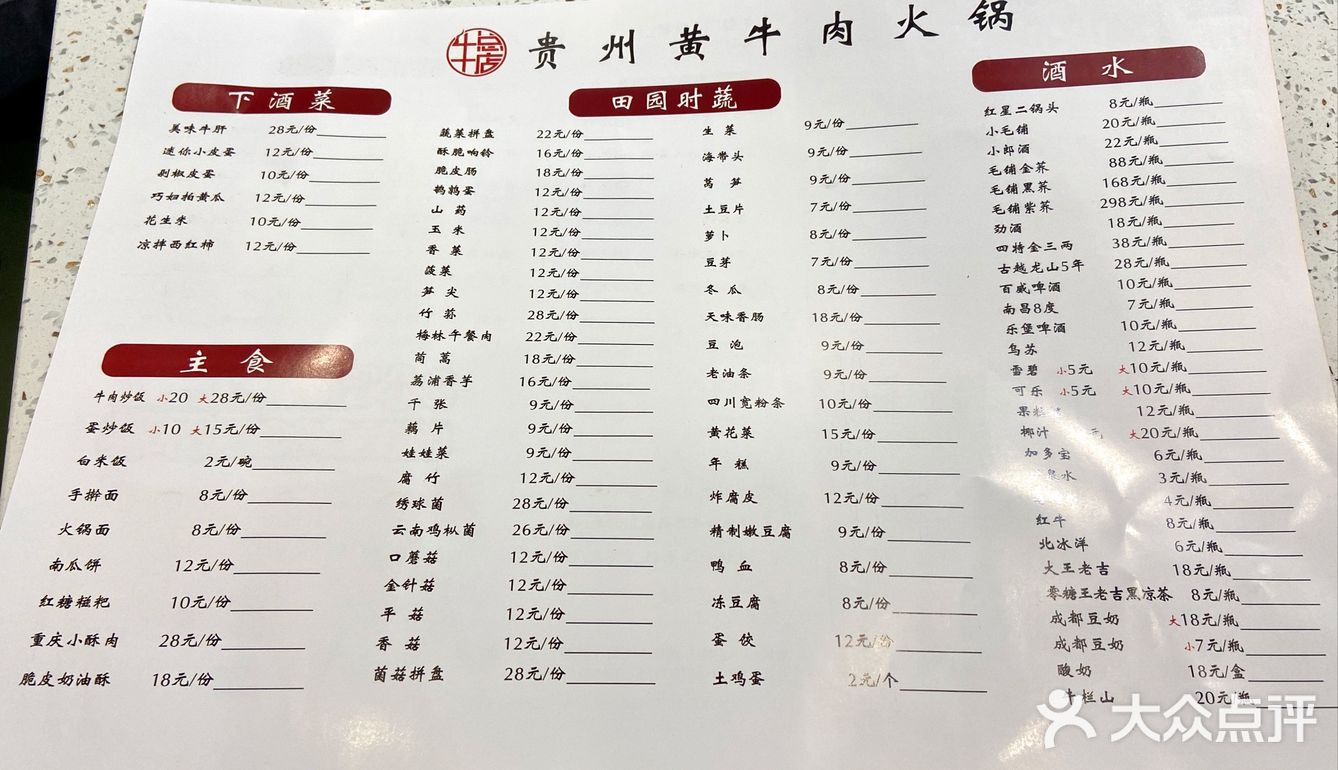 牛总店
贵州黄牛肉火锅
下酒菜
美味牛肝 28元/份
迷你小皮蛋 12元/份
剁椒皮蛋 10元/份
巧妇拍黄瓜 12元/份
花生米 10元/份
凉拌西红柿 12元/份
主食
牛肉炒饭 小20 大28元/份
蛋炒饭 小10 大15元/份
白米饭 2元/碗
手擀面 8元/份
火锅面 8元/份
南瓜饼 12元/份
红糖糍粑 10元/份
重庆小酥肉 28元/份
脆皮奶油酥 18元/份
田园时蔬
蔬菜拼盘 22元/份
酥脆响铃 16元/份
脆皮肠 18元/份
鹌鹑蛋 12元/份
山药 12元/份
玉米 12元/份
香菜 12元/份
菠菜 12元/份
笋尖 12元/份
竹荪 28元/份
梅林午餐肉 22元/份
茼蒿 18元/份
荔浦香芋 16元/份
千张 9元/份
藕片 9元/份
娃娃菜 9元/份
腐竹 12元/份
绣球菌 28元/份
云南鸡枞菌 26元/份
口蘑菇 12元/份
金针菇 12元/份
平菇 12元/份
香菇 12元/份
菌菇拼盘 28元/份
生菜 9元/份
海带头 9元/份
莴笋 9元/份
土豆片 7元/份
萝卜 8元/份
豆芽 7元/份
冬瓜 8元/份
天味香肠 18元/份
豆泡 9元/份
老油条 9元/份
四川宽粉条 10元/份
黄花菜 15元/份
年糕 9元/份
炸腐皮 12元/份
精制嫩豆腐 9元/份
鸭血 8元/份
冻豆腐 8元/份
蛋饺 12元/份
土鸡蛋 2元/个
酒水
红星二锅头 8元/瓶
小毛铺 20元/瓶
小郎酒 22元/瓶
毛铺金荞 88元/瓶
毛铺黑荞 168元/瓶
毛铺紫荞 298元/瓶
劲酒 18元/瓶
四特金三两 38元/瓶
古越龙山5年 28元/瓶
百威啤酒 10元/瓶
南昌8度 7元/瓶
乐堡啤酒 10元/瓶
乌苏 12元/瓶
雪碧 小5元 大10元/瓶
可乐 小5元 大10元/瓶
果粒 12元/瓶
椰汁 元 大20元/瓶
加多宝 6元/瓶
泉水 3元/瓶
4元/瓶
红牛 8元/瓶
北冰洋 6元/瓶
大王老吉 18元/瓶
零糖王老吉黑凉茶 8元/瓶
成都豆奶 大18元/瓶
成都豆奶 小7元/瓶
酸奶 18元/盒
牛栏山 20元/瓶
大众点评